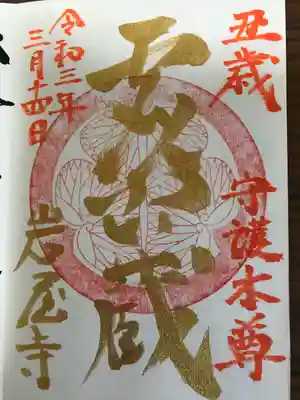 丑歳　守護本尊
虚空蔵
令和三年
三月十四日
岩屋寺